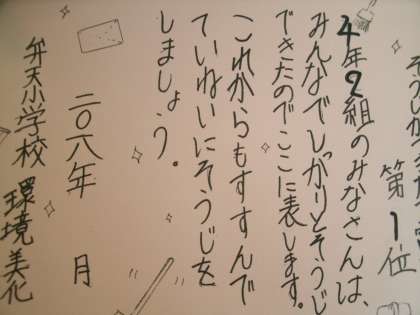 第1位
4年2組のみなさんは、
みんなでしっかりとそうじ
できたのでここに表します。
これからもすすんで
ていねいにそうじを
しましょう。
二〇八年 月
弁天小学校 環境美化